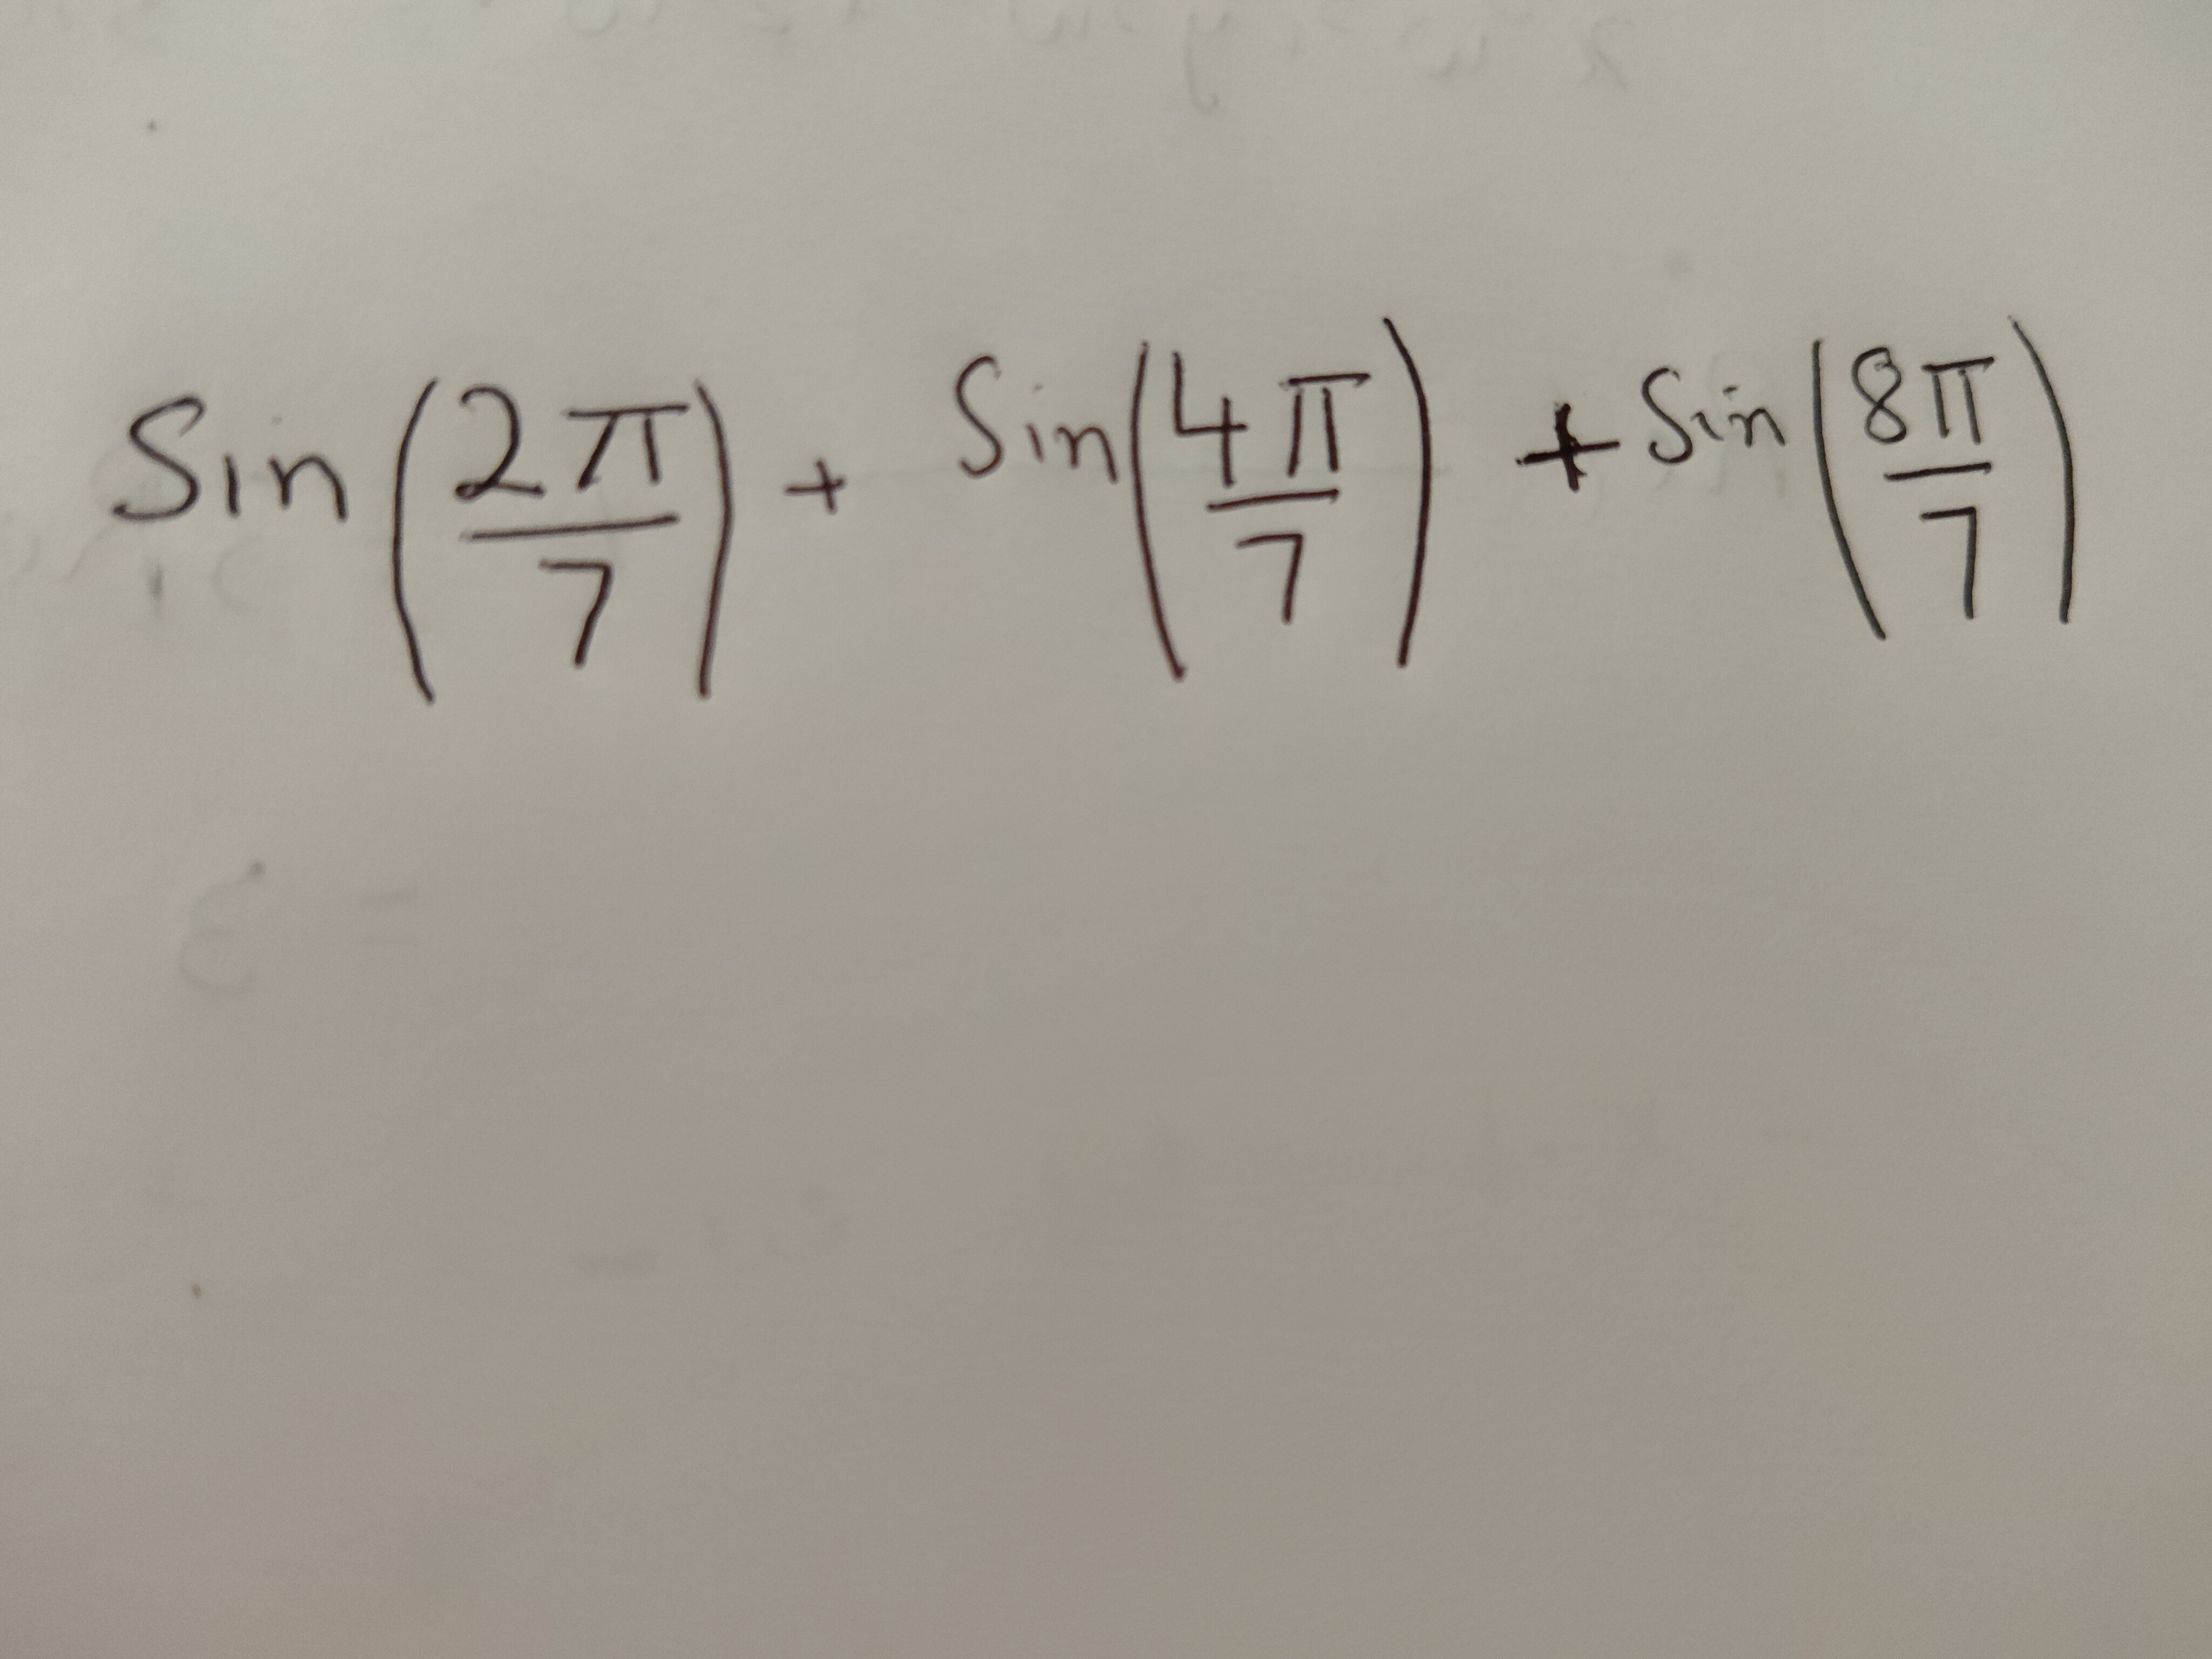 Sin (2π/7) + Sin (4π/7) + Sin (8π/7)